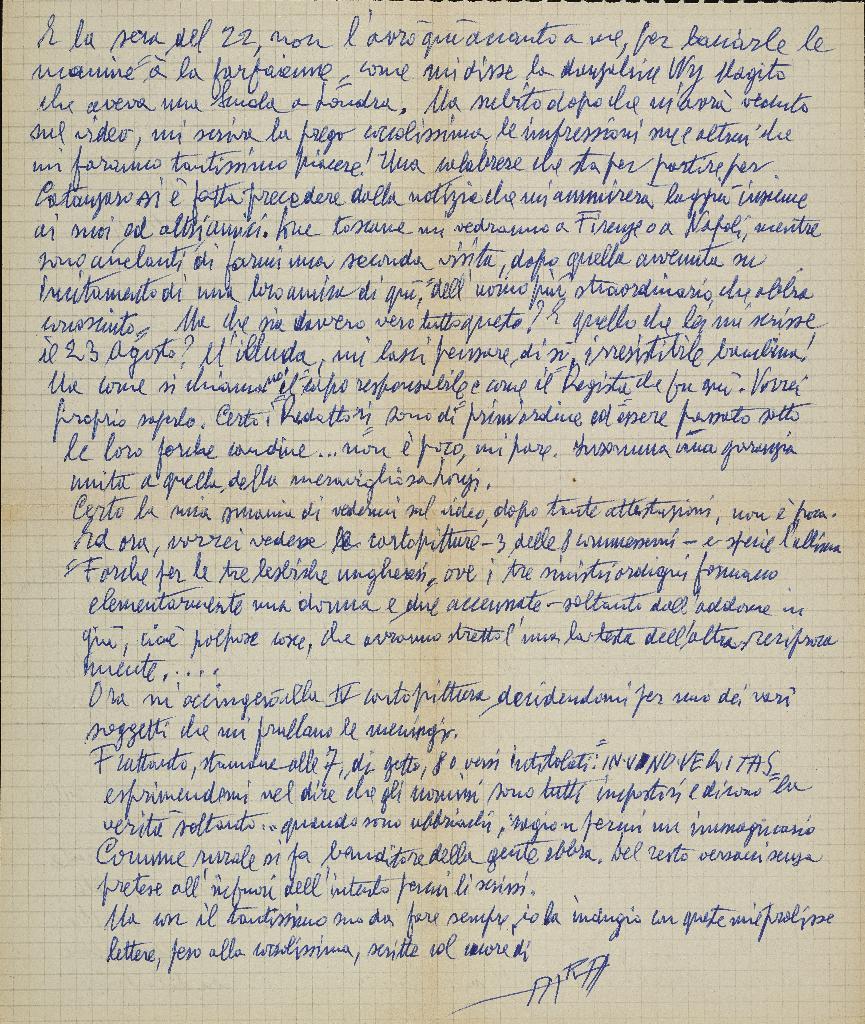 E la sera del 22, non l'avrò qui accanto a me, per baciarle le
manine "à la parfaienne", come mi disse la danzatrice Wy Magito
che aveva una Scuola a Londra. Ma subito dopo che mi avrà veduto
sul video, mi scriva la prego cocolissima, le impressioni sue e altrui che
mi faranno tantissimo piacere! Una calabrese che sta per partire per
Catanzaro si è fatta precedere dalla notizia che mi ammirerà laggiù insieme
ai suoi ed altri amici. Due toscane mi vedranno a Firenze o a Napoli, mentre
sono anelanti di farmi una seconda visita, dopo quella avvenuta su
incitamento di una loro amica di qui, "dell'uomo più straordinario, che abbia
conosciuto". Ma che sia davvero vero tutto questo? E quello che lei mi scrisse
il 23 Agosto? M'illuda, mi lasci pensare, di sì, irresistibile bambina!
Ma come si chiama il capo responsabile e come il Regista che fu qui. Vorrei
proprio saperlo. Certo i Redattori, sono di prim'ordine ed essere passato sotto
le loro forche caudine... non è poco, mi pare. Insomma una garanzia
unita a quella della meravigliosa
Certo la mia smania di vedermi sul video, dopo tante attestazioni, non è poca.
Ed ora, vorrei vedese le cartopitture - 3 delle 8 commessemi - e specie l'ultima
"Forche per le tre lesbiche ungheresi", ove i tre sinistri ordigni formano
elementarmente una donna e due accennate - soltanto dall'addome in
giù, cioè polpose cosce, che avranno stretto l'una la testa dell'altra reciproca
mente.....
Ora m'accingerò alla IV cartopittura decidendomi per uno dei vari
soggetti che mi frullano le meningi.
Frattanto, stamane alle 7, di getto, 80 versi intitolati: "IN VINO VERITAS"
esprimendomi nel dire che gli uomini sono tutti impostori e dicono la
verità soltanto... quando sono ubbriachi, ragion per cui un immaginario
Comune rurale si fa banditore della gente ebbra. Del resto versacci senza
pretese all'infuori dell'intento per cui li scrissi.
Ma con il tantissimo suo da fare sempre, io la indugio con queste mie prolisse
lettere, peso alla cocolissima, scritte col cuore di